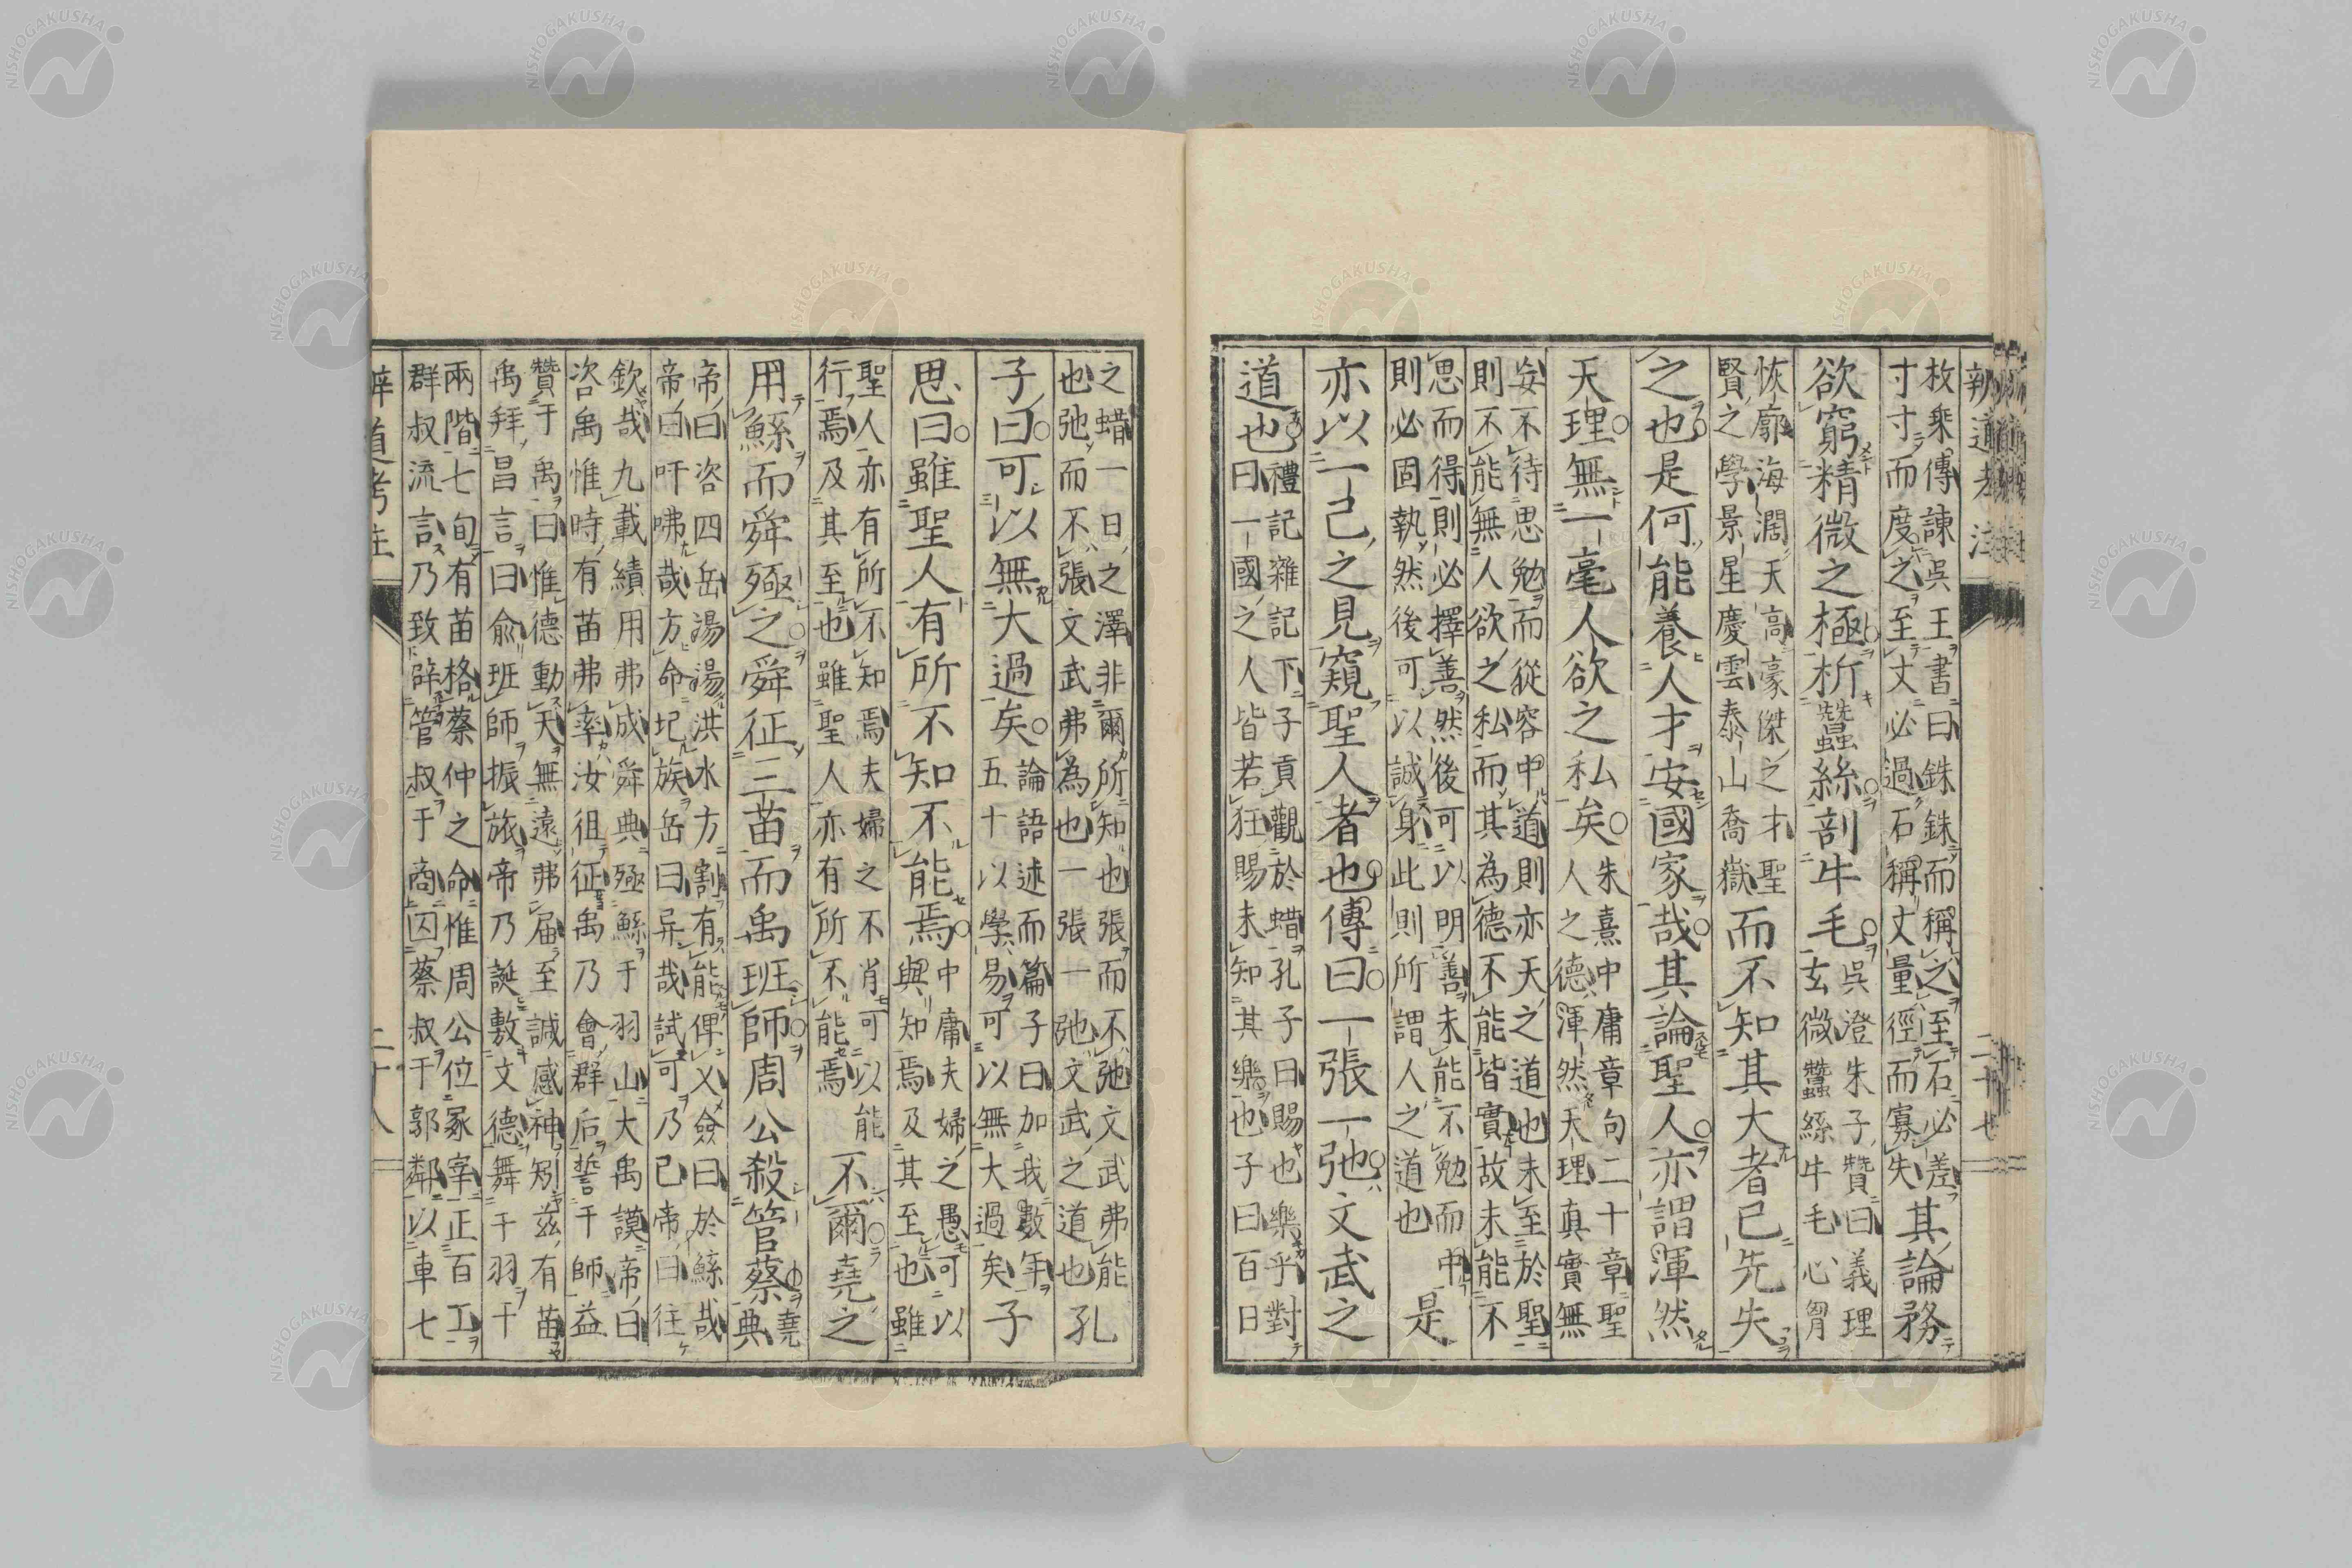 辨道考注
枚乗傳諌吳王書曰銖銖而稱之至石必差
寸寸而度之至丈必過石稱丈量徑而寡失其論務
欲窮精微之極析蠶絲剖牛毛吳澄朱子贊曰義理
玄微蠶絲牛毛心胷
恢廓海濶天高豪傑之才聖
賢之學景星慶雲泰山喬嶽而不知其大者已先失
之也是何能養人才安國家哉其論聖人亦謂渾然
天理無一毫人欲之私矣朱熹中庸章句二十章聖
人之德渾然天理真實無
妄不待思勉而從容中道則亦天之道也未至於聖
則不能無人欲之私而其為德不能皆實故未能不
思而得則必擇善然後可以明善未能不勉而中
則必固執然後可以誠身此則所謂人之道也是
亦以一己之見窺聖人者也傳曰一張一弛文武之
道也禮記雜記下子貢觀於蜡孔子曰賜也樂乎對
曰一國之人皆若狂賜未知其樂也子曰百日
二十七
之蜡一日之澤非爾所知也張而不弛文武弗能
也弛而不張文武弗為也一張一弛文武之道也孔
子曰可以無大過矣論語述而篇子曰加我數年
五十以學易可以無大過矣子
思曰雖聖人有所不知不能焉中庸夫婦之愚可以
與知焉及其至也雖
聖人亦有所不知焉夫婦之不肖可以能
行焉及其至也雖聖人亦有所不能焉不爾堯之
用鯀而舜殛之舜征三苗而禹班師周公殺管蔡堯
典
帝曰咨四岳湯湯洪水方割有能俾乂僉曰於鯀哉
帝曰吁咈哉方命圮族岳曰异哉試可乃已帝曰往
欽哉九載績用弗成舜典殛鯀于羽山大禹謨帝曰
咨禹惟時有苗弗率汝徂征禹乃會群后誓于師益
贊于禹曰惟德動天無遠弗届至諴感神矧茲有苗
禹拜昌言曰俞班師振旅帝乃誕敷文德舞干羽于
兩階七旬有苗格蔡仲之命惟周公位冢宰正百工
群叔流言乃致辟管叔于商囚蔡叔于郭鄰以車七
辨道考注
二十八